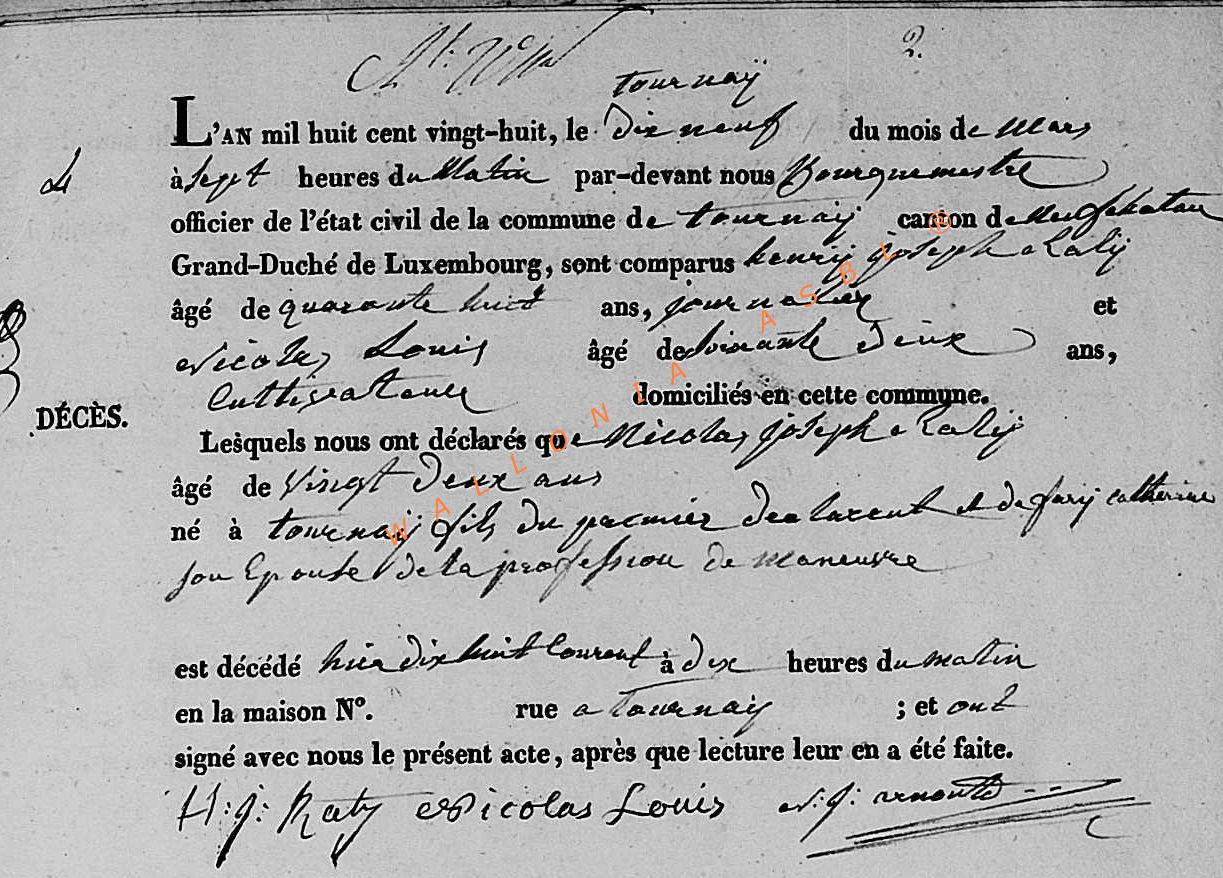 2.
tournaÿ
L'AN mil huit cent vingt-huit, le dix neuf du mois de Mars
à sept heures du Matin par-devant nous Bourguemestre
officier de l'état civil de la commune de tournaÿ canton de Neufchatau
Grand-Duché de Luxembourg, sont comparus henrÿ joseph Ratÿ
âgé de quarante huit ans, journalier et
Nicolas Louis âgé de soixante deux ans,
Cultivateur domiciliés en cette commune.
DÉCÈS.
Lesquels nous ont déclarés que Nicolas joseph Ratÿ
âgé de Vingt deux ans
né à tournaÿ fils du premier declarent et de catherine
son Epouse de la profession de maneuvre
est décédé hier dix huit Courent à dix heures du matin
en la maison Nº. rue a tournaÿ ; et ont
signé avec nous le présent acte, après que lecture leur en a été faite.
H: j: Raty Nicolas Louis N: j:
WALLONIA ASBL ©